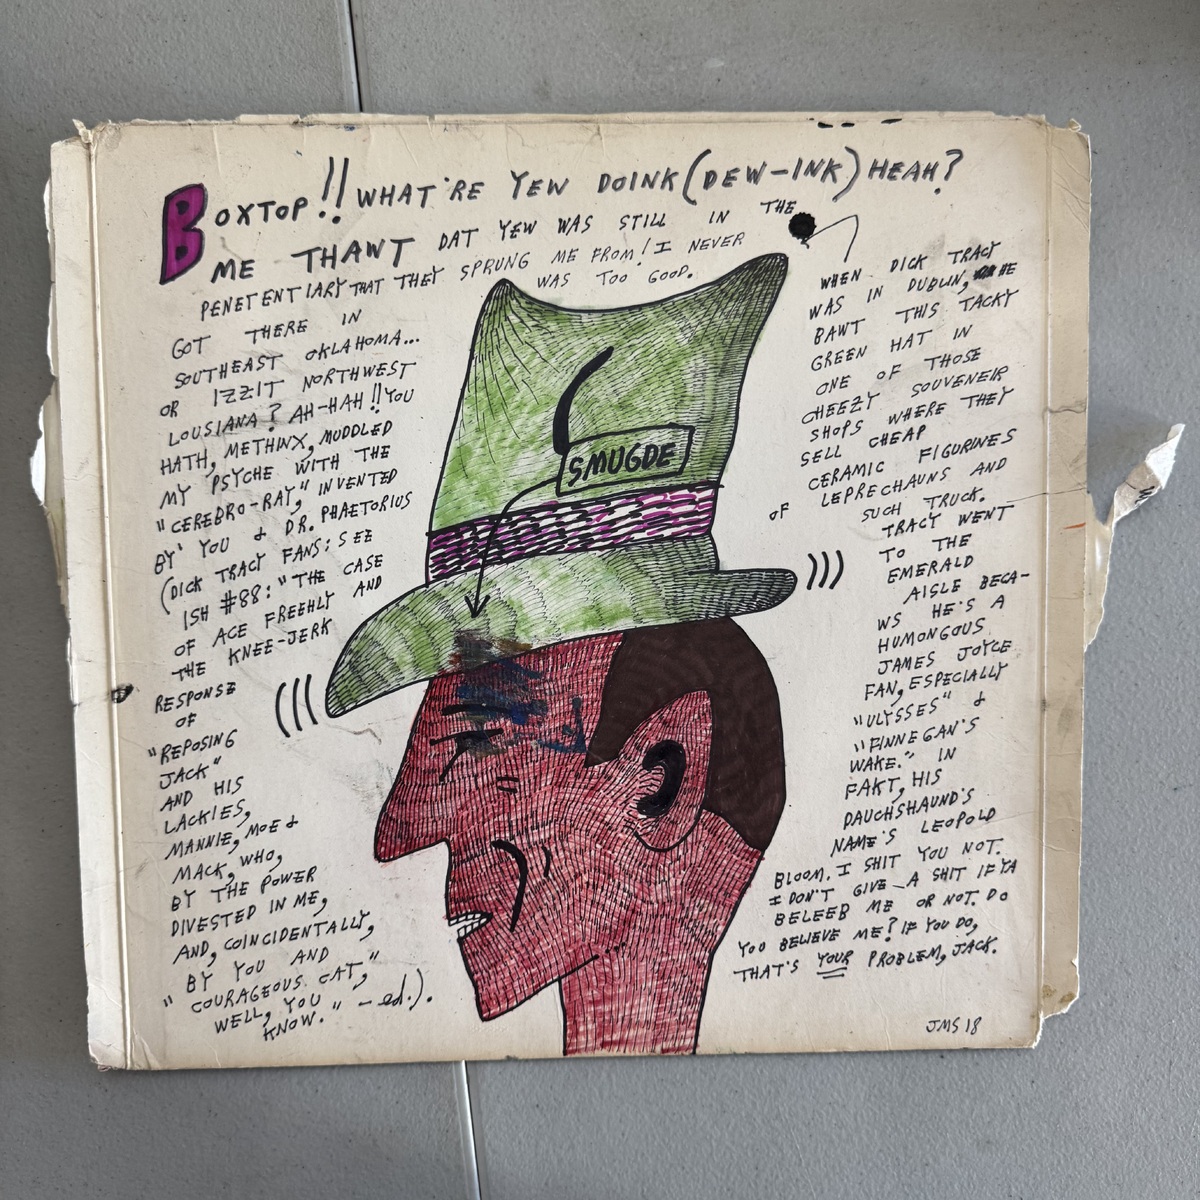 BOXTOP!! WHAT'RE YEW DOINK (DEW-INK) HEAH?
ME THANT DAT YEW WAS STILL IN THE
PENETENTIARY THAT THEY SPRUNG ME FROM! I NEVER
WAS TOO GOOD.
GOT THERE IN
SOUTHEAST OKLAHOMA...
OR IZZIT NORTHWEST
LOUSIANA? AH-HAH!! YOU
HATH, METHINX, MUDDLED
MY PSYCHE WITH THE
"CEREBRO-RAY," INVENTED
BY YOU & DR. PHAETORIUS
(DICK TRACY FANS: SEE
ISH #88: "THE CASE
OF ACE FREEHLY AND
THE KNEE-JERK
RESPONSE
OF
"REPOSING
JACK"
AND HIS
LACKIES,
MANNIE, MOE &
MACK, WHO,
BY THE POWER
DIVESTED IN ME,
AND, COINCIDENTALLY,
BY YOU AND
"COURAGEOUS CAT,"
WELL, YOU
KNOW." -ed.).
SMUGDE
WHEN DICK TRACY
WAS IN DUBLIN, HE
BAWT THIS TACKY
GREEN HAT IN
ONE OF THOSE
CHEEZY SOUVENEIR
SHOPS WHERE THEY
SELL CHEAP
CERAMIC FIGURINES
OF LEPRECHAUNS AND
SUCH TRUCK.
TRACY WENT
TO THE
EMERALD
AISLE BECA-
WS HE'S A
HUMONGOUS
JAMES JOYCE
FAN, ESPECIALLY
"ULYSSES" &
"FINNEGAN'S
WAKE." IN
FAKT, HIS
DAUCHSHAUND'S
NAME'S LEOPOLD
BLOOM. I SHIT YOU NOT.
I DON'T GIVE A SHIT IF YA
BELEEB ME OR NOT. DO
YOU BELIEVE ME? IF YOU DO,
THAT'S YOUR PROBLEM, JACK.
JMS 18